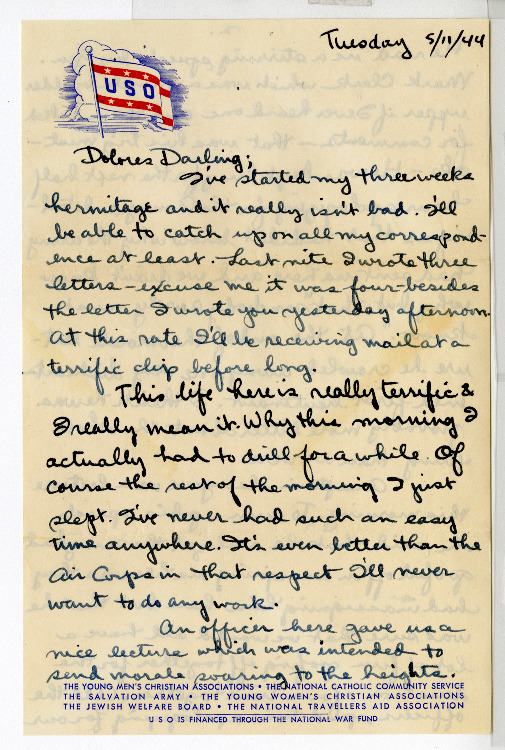 Tuesday 5/11/44
USO
Dolores Darling;
I've started my three weeks
hermitage and it really isn't bad. I'll
be able to catch up on all my correspond-
ence at least. - Last nite I wrote three
letters - excuse me it was four - besides
the letter I wrote you yesterday afternoon.
At this rate I'll be receiving mail at a
terrific clip before long.
This life here is really terrific &
I really mean it. Why this morning I
actually had to drill for a while. Of
course the rest of the morning I just
slept. I've never had such an easy
time anywhere. It's even better than the
Air Corps in that respect I'll never
want to do any work.
An officer here gave us a
nice lecture which was intended to
send morale soaring to the heights.
THE YOUNG MEN'S CHRISTIAN ASSOCIATIONS • THE NATIONAL CATHOLIC COMMUNITY SERVICE
THE SALVATION ARMY • THE YOUNG WOMEN'S CHRISTIAN ASSOCIATIONS
THE JEWISH WELFARE BOARD • THE NATIONAL TRAVELLERS AID ASSOCIATION
USO IS FINANCED THROUGH THE NATIONAL WAR FUND